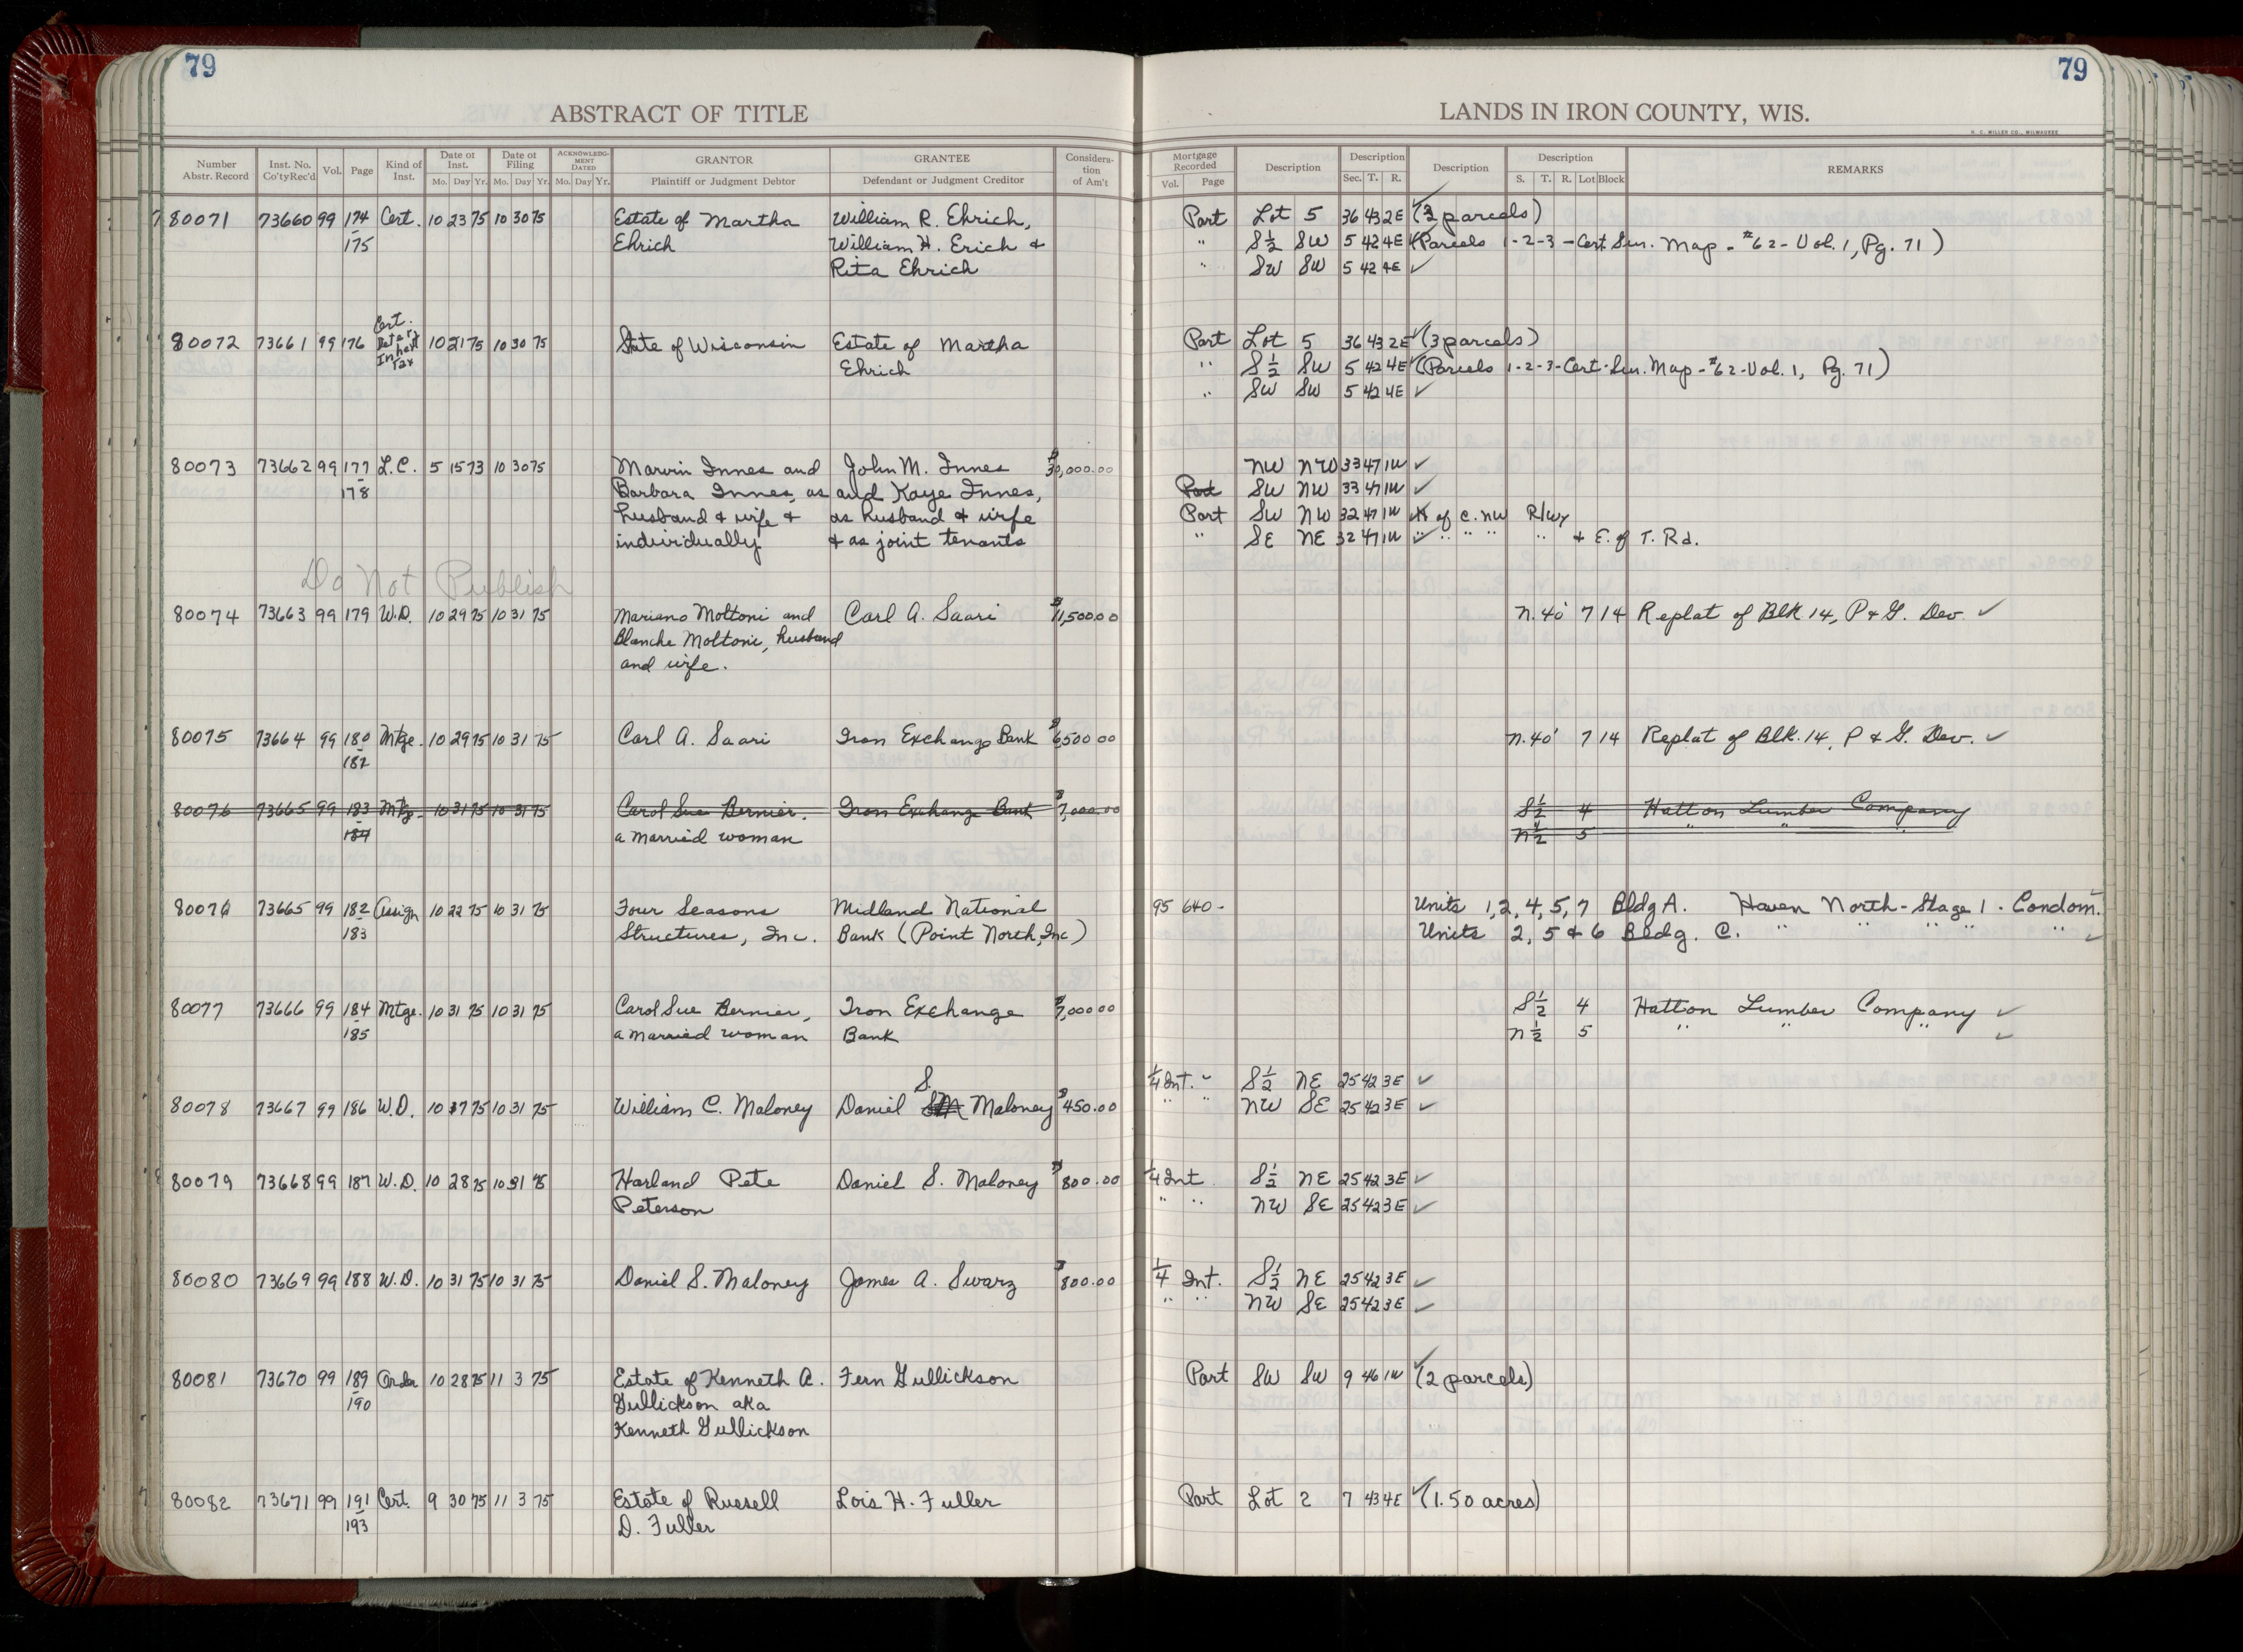 79
79
ABSTRACT OF TITLE
LANDS IN IRON COUNTY, WIS.
H. C. MILLER CO., MILWAUKEE
Number Abstr. Record Inst. No. Co'ty Rec'd Vol. Page Kind of Inst. Date of Inst. Mo. Day Yr. Date of Filing Mo. Day Yr. ACKNOWLEDGMENT DATED Mo. Day Yr. GRANTOR Plaintiff or Judgment Debtor GRANTEE Defendant or Judgment Creditor Consideration of Am't
Mortgage Recorded Vol. Page Description Description Sec. T. R. Description Description S. T. R. Lot Block REMARKS
80071 73660 99 174 Cert. 10 23 75 10 30 75 Estate of Martha William R. Ehrich, Part Lot 5 36 43 2E ✓ (3 parcels)
175 Ehrich William H. Erich & " S½ SW 5 42 4E ✓ (Parcels 1-2-3-Cert. Sur. Map - #62-Vol. 1, Pg. 71)
Rita Ehrich " SW SW 5 42 4E ✓
Cert.
80072 73661 99 176 Deter. 10 21 75 10 30 75 State of Wisconsin Estate of Martha Part Lot 5 36 43 2E ✓ (3 parcels)
Inherit Tax Ehrich " S½ SW 5 42 4E ✓ (Parcels 1-2-3-Cert. Sur. Map - #62-Vol. 1, Pg. 71)
" SW SW 5 42 4E ✓
80073 73662 99 177 L.C. 5 15 73 10 30 75 Marvin Innes and John M. Innes $30,000.00 NW NW 33 47 1W ✓
178 Barbara Innes, as and Kaye Innes, Part SW NW 33 47 1W ✓
husband & wife & as husband & wife Part SW NW 32 47 1W of C. NW R/Wy
individually & as joint tenants " SE NE 32 47 1W ✓ " " " " " & E. of T. Rd.
Do Not Publish
80074 73663 99 179 W.D. 10 29 75 10 31 75 Mariano Moltoni and Carl A. Saari $11,500.00 N. 40' 7 14 Replat of Blk 14, P & G. Dev. ✓
Blanche Moltoni, husband
and wife.
80075 73664 99 180 Mtge. 10 29 75 10 31 75 Carl A. Saari Iron Exchange Bank $6,500.00 N. 40' 7 14 Replat of Blk. 14, P & G. Dev. ✓
181
80076 73665 99 183 Mtg. 10 31 75 10 31 75 Carol Sue Bernier, Iron Exchange Bank $7,000.00 S½ 4 Hatton Lumber Company
184 a married woman N½ 5 " " "
80076 73665 99 182 Assign 10 22 75 10 31 75 Four Seasons Midland National 95 640- Units 1, 2, 4, 5, 7 Bldg A. Haven North - Stage 1 - Condom.
183 Structures, Inc. Bank (Point North, Inc) Units 2, 5 & 6 Bldg. C. " " " " " ✓
80077 73666 99 184 Mtge. 10 31 75 10 31 75 Carol Sue Bernier, Iron Exchange $7,000.00 S½ 4 Hatton Lumber Company ✓
185 a married woman Bank N½ 5 " " " ✓
S. ¼ Int. S½ NE 25 42 3E ✓
80078 73667 99 186 W.D. 10 27 75 10 31 75 William C. Maloney Daniel Maloney $450.00 " " NW SE 25 42 3E ✓
80079 73668 99 187 W.D. 10 28 75 10 31 75 Harland Pete Daniel S. Maloney $800.00 ¼ Int S½ NE 25 42 3E ✓
Peterson " " NW SE 25 42 3E ✓
80080 73669 99 188 W.D. 10 31 75 10 31 75 Daniel S. Maloney James A. Swarz $800.00 ¼ Int. S½ NE 25 42 3E ✓
" " NW SE 25 42 3E ✓
80081 73670 99 189 Order 10 28 75 11 3 75 Estate of Kenneth A. Fern Gullickson Part SW SW 9 46 1W ✓ (2 parcels)
190 Gullickson aka
Kenneth Gullickson
80082 73671 99 191 Cert. 9 30 75 11 3 75 Estate of Russell Lois H. Fuller Part Lot 2 7 43 4E ✓ (1.50 acres)
193 D. Fuller